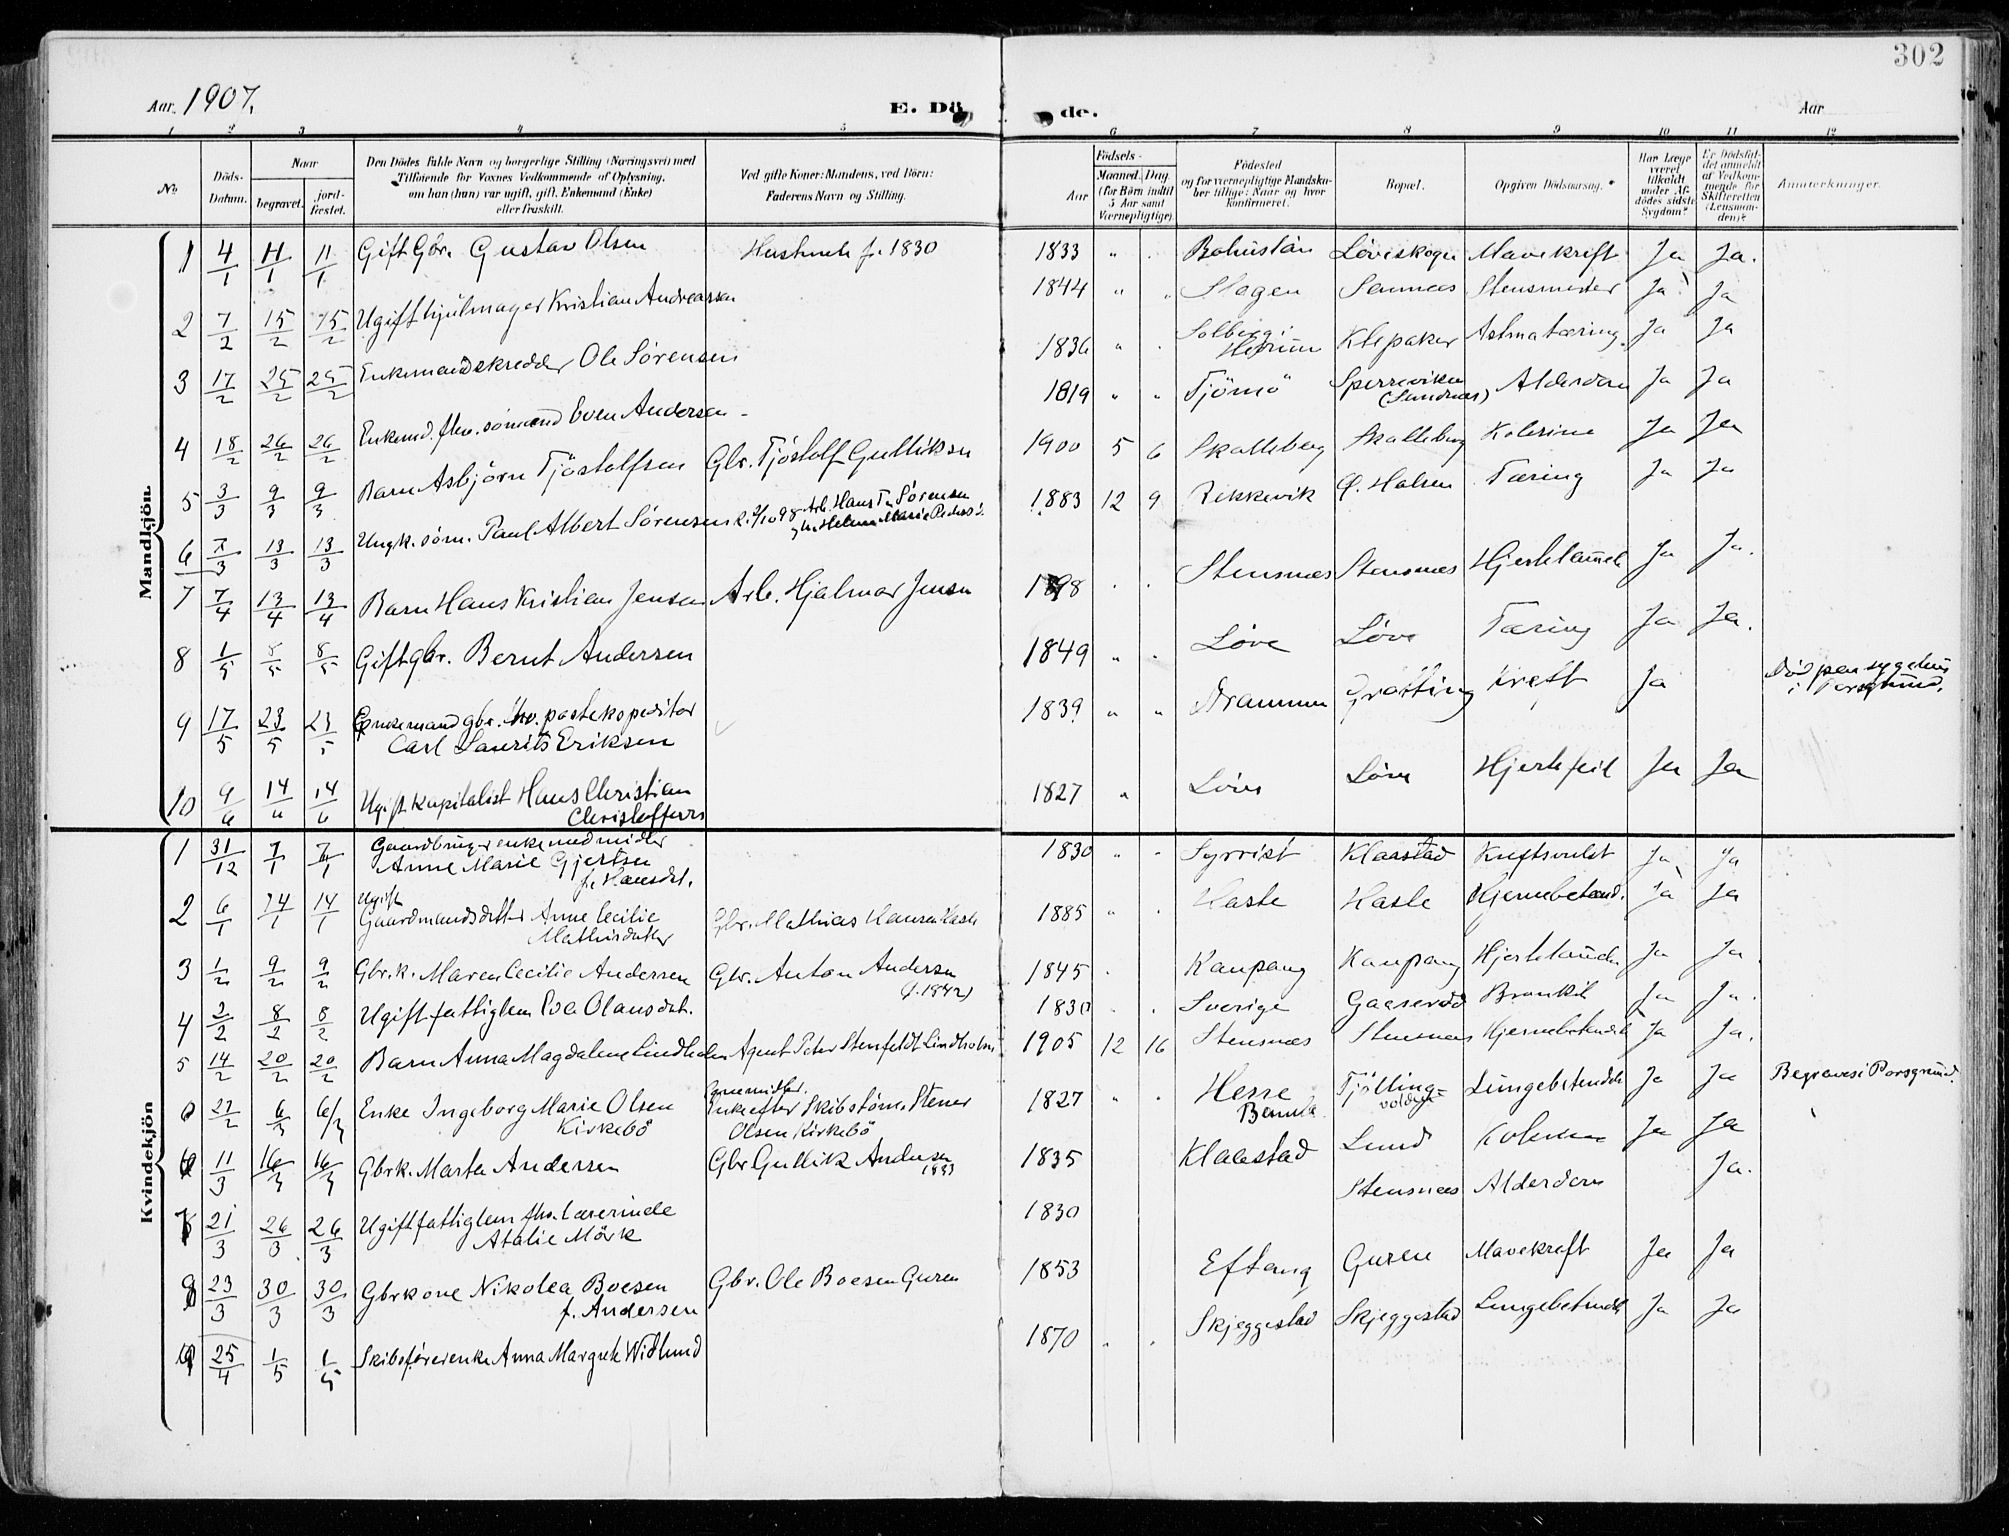 302
Aar. 1907.
E. Dö de.
Aar
1 2 3 4 5 6 7 8 9 10 11 12
No.
Döds-Datum.
Naar
begravet.
jord-fæstet.
Den Dödes fulde Navn og borgerlige Stilling (Næringsvei) med
Tilföiende for Voxnes Vedkommende af Oplysning,
om han (hun) var ugift, gift, Enkemand (Enke)
eller fraskilt.
Ved gifte Koner: Mandens, ved Börn:
Faderens Navn og Stilling.
Födsels-
Aar
Maaned. Dag.
(for Börn indtil
5 Aar samt
Værnepligtige).
Födested
og for værnepligtige Mandska-
ber tillige: Naar og hvor
konfirmeret.
Bopæl.
Opgiven Dödsaarsag.
Har Læge
været
tilkaldt
under Af-
dödes sidste
Sygdom?
Er Dödsfal-
det anmeldt
af Vedkom-
mende for
Skifteretten
(Lensman-
den)?
Anmerkninger.
Mandkjön.
1 4/1 11/1 11/1 Gift Gbr. Gustav Olsen Hustrueh f. 1830 1833 " . Bohuslän Løveskogn Mavekreft Ja Ja.
2 7/2 15/2 15/2 Ugift hjulmager Kristian Andreassen 1844 " " Slagen Sannæs Stensmerter Ja Ja
3 17/2 25/2 25/2 Enkemand skredder Ole Sørensen 1836 " . Solberg i Hedrum Klepaker Astma tæring Ja Ja
4 18/2 26/2 26/2 Enkemd. fhv. sømand Even Andersen 1819 " " Tjömö Sperreviken (Sandnæs) Alderdom Ja Ja
5 3/3 9/3 9/3 Barn Asbjörn Tjöstolfsen Gbr. Tjöstolf Gulliksen 1900 5 6 Skalleberg Skalleberg Kolerine Ja Ja
6 7/3 13/3 13/3 Ungk. søm. Paul Albert Sørensen Arb. Hans T. Sørensen Marie Peders d. 1883 12 9 Rekkevik Ø. Halsen Tæring Ja Ja
7 7/4 13/4 13/4 Barn Hans Kristian Jensen Arb. Hjalmar Jensen 1898 . . Stensnæs Stensnæs Hjertelamh Ja Ja.
8 1/5 8/5 8/5 Gift gbr. Bernt Andersen 1849 " . Løve Løve Tæring Ja Ja.
9 17/5 23/5 23/5 Enkemand gbr. fhv. postekspeditør
Carl Laurits Eriksen 1839 " " Drammen Grøtting kreft Ja Död paa sygehus
i Porsgrund.
10 9/6 14/6 14/6 Ugift kapitalist Hans Christian
Christoffersen 1827 " Løve Løve Hjertefeil Ja Ja
Kvindekjön
1 31/12 7/1 7/1 Gaardbruger enke med midler
Anne Marie Gjertsen
f. Hansdat. 1830 " " Syrrist Klaastad Kreftsvulst Ja Ja
2 6/1 14/1 14/1 Ugift
Gaardmandsdatter Anne Cecilie
Mathisdatter Gbr. Mathias Hansen Hasle 1885 " . Hasle Hasle Hjernebetænd. Ja Ja
3 1/2 9/2 9/2 Gbr.k. Maren Cecilie Andersen Gbr. Anton Andersen
(f. 1842) 1845 . Kaupang Kaupang Hjertelamh Ja Ja.
4 2/2 8/2 8/2 Ugift fattiglem Eva Olausdat. 1830 . . Sverige Gaaserød Bronkit Ja Ja.
5 14/2 20/2 20/2 Barn Anna Magdalene Lindholm Agent Peter Stenfeldt Lindholm 1905 12 16 Stensnæs Stensnæs Hjernebetændel. Ja Ja.
27/2 6/3 6/3 Enke Ingeborg Marie Olsen
Kirkebö Egne midler.
Enke efter Skibstøm. Stener
Olsen Kirkebö 1827 " . Herre
Bamle Tjölling-
vold Lungebetendelse Ja Ja Begraves i Porsgrund.
11/3 16/3 16/3 Gbrk. Marte Andersen Gbr Gullik Andersen
1833 1835 Klaastad Lund Kolerine Ja Ja
21/3 26/3 26/3 Ugift fattiglem fhv. lærerinde
Atalie Mörk 1830 Stensnæs Alderdom Ja.
23/3 30/3 30/3 Gbrkone Nikolea Boesen
f. Andersen Gbr. Ole Boesen Guren 1853 Eftang Guren Mavekreft Ja Ja
25/4 1/5 1/5 Skibsførerenke Anna Margrete Widlund 1870 . . Skjeggestad Skjeggestad Lungebetendels Ja Ja